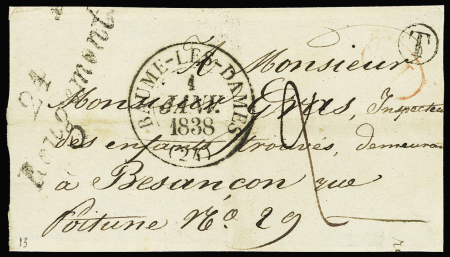 24
Rougemont
T
BAUME-LES-DAMES
1
JANV.
1838
(24)
A Monsieur
Monsieur Gras, Inspecteu
des enfants trouvés, demeuran
à Besançon rue
Poitune N.º 29
2
13